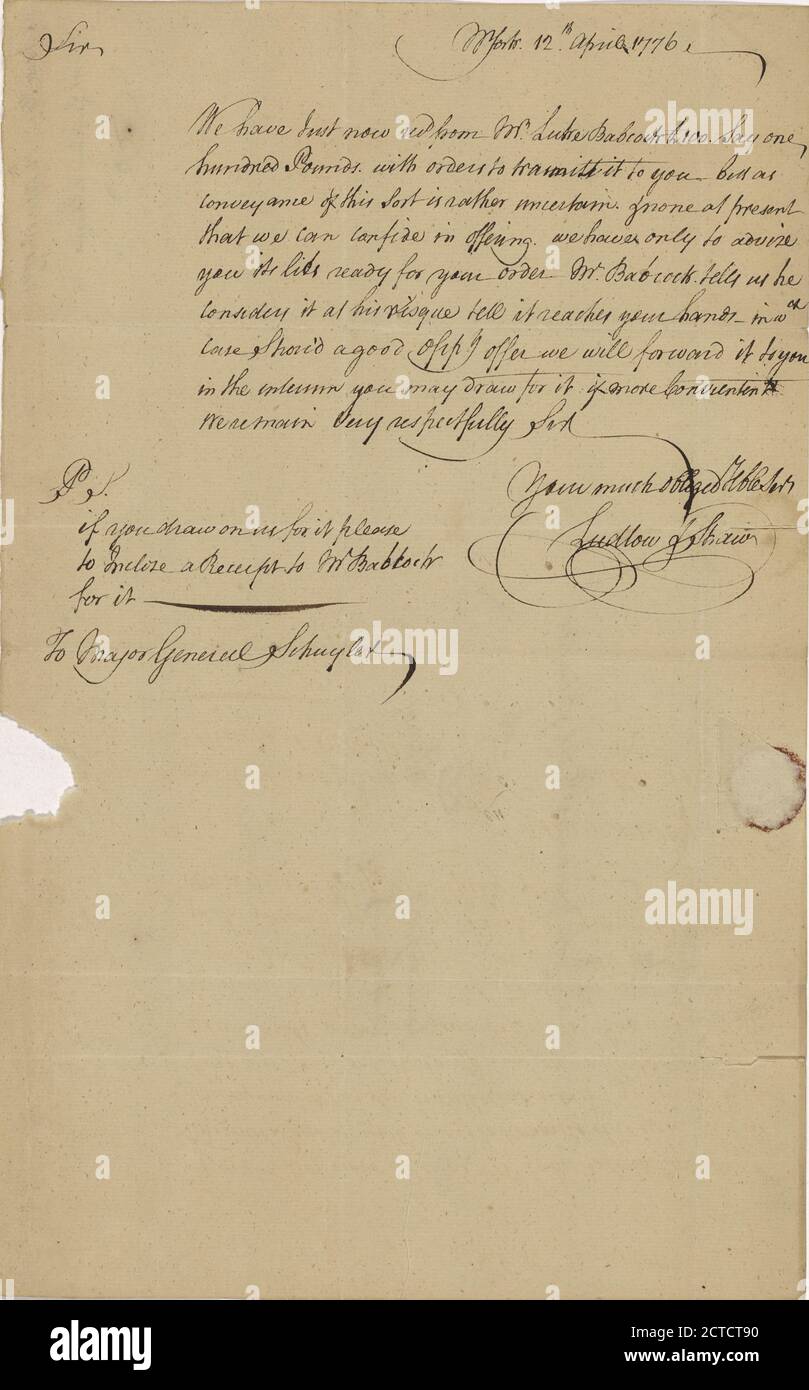 Sir
NYork. 12.th April 1776.
We have Just now recd from Mr. Luke Babcock £100. Say one
hundred Pounds. with orders to transmitt it to you but as
conveyance of this sort is rather uncertain. & none at present
that we can confide in offering. we have only to advize
you its lies ready for your order Mr. Babcock. tells us he
considers it at his risque tell it reaches your hands - in wch
case Shou'd a good oppy offer we will forward it to you
in the interim you may draw for it if more Convenient
We remain Very respectfully Sir
Your much obliged Hble Servts
Ludlow & Shaw
P.S.
if you draw on us for it please
to Inclose a Receipt to Mr Babcock
for it
To Major General Schuyler
alamy
Image ID: 2CTCT90
www.alamy.com